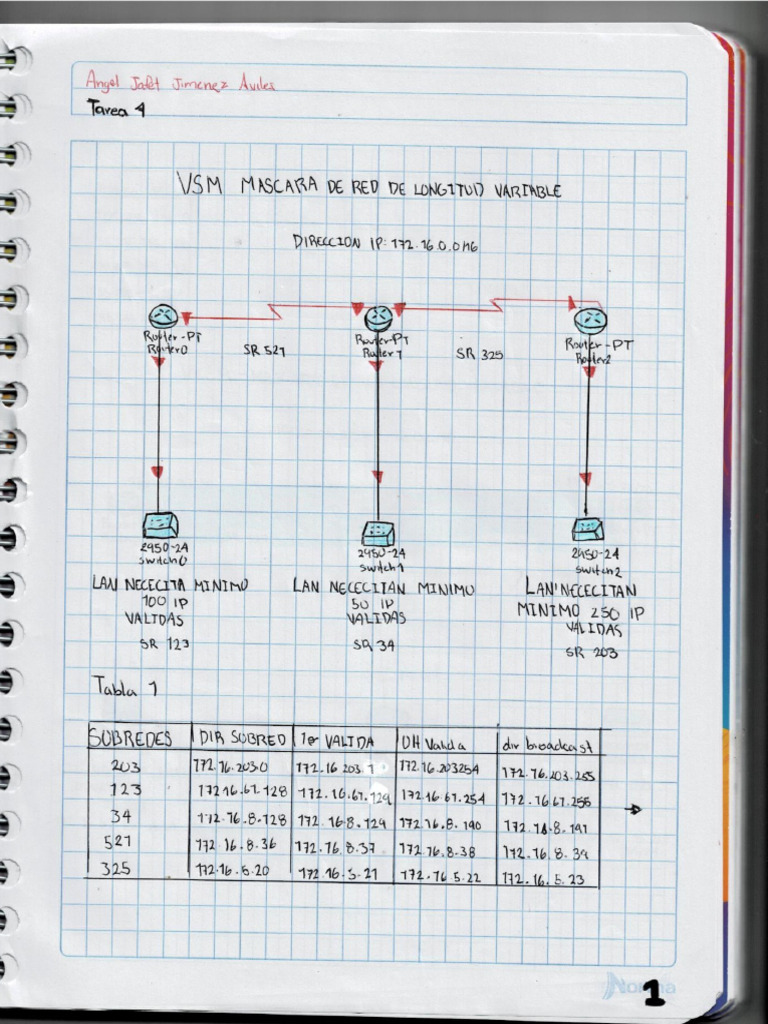 Angel Jafet Jimenez Aviles
Tarea 4
VSM MASCARA DE RED DE LONGITUD VARIABLE
DIRECCION IP: 172.16.0.0/16
Router-PT Router-PT Router-PT
Router0 SR 521 Router1 SR 325 Router2
2950-24 2950-24 2950-24
switch0 switch1 switch2
LAN NECECITA MINIMO LAN NECECITAN MINIMO LAN NECECITAN
100 IP 50 IP MINIMO 250 IP
VALIDAS VALIDAS VALIDAS
SR 123 SR 34 SR 203
Tabla 1
SUBREDES DIR SUBRED 1er VALIDA Valida dir broadcast
203 172.16.203.0 172.16.203.1 172.16.203254 172.16.203.255
123 172 16.61.128 172.16.61.129 172.16.61.254 172.16.61.255
34 172.16.8.128 172.16.8.129 172.16.8.190 172.16.8.191
521 172.16.8.36 172.16.8.37 172.16.8.38 172.16.8.39
325 172.16.5.20 172.16.5.21 172.16.5.22 172.16.5.23
Norma
1